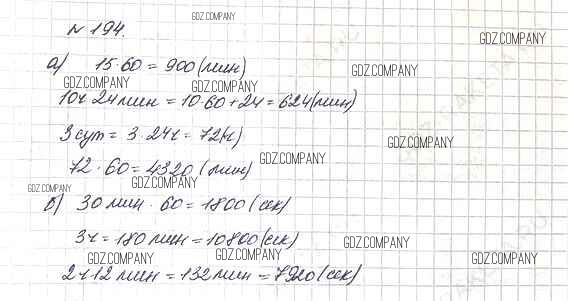 GDZ.COMPANY
№ 194.
GDZ.COMPANY
а) 15·60 = 900 (мин)
GDZ.COMPANY
GDZ.COMPANY
GDZ.COMPANY
10ч 24мин = 10·60+24 = 624(мин)
3 сут = 3·24ч = 72(ч)
GDZ.COMPANY
GDZ.COMPANY
72 · 60 = 4320 (мин)
GDZ.COMPANY
GDZ.COMPANY
б) 30 мин · 60 = 1800 (сек)
3ч = 180 мин = 10800 (сек)
GDZ.COMPANY
GDZ.COMPANY
GDZ.COMPANY
GDZ.COMPANY
2ч 12 мин = 132 мин = 7920 (сек)